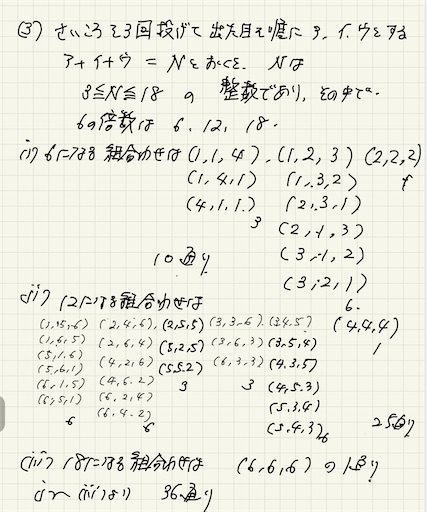 (3) さいころを3回投げて出た目を順にア、イ、ウとする
ア+イ+ウ = Nとおくと、Nは
3≦N≦18 の 整数であり、その中で
6の倍数は 6, 12, 18.
(i) 6になる組合わせは (1,1,4), (1,2,3) (2,2,2)
(1,4,1) (1,3,2) 1
(4,1,1) (2,3,1)
3 (2,1,3)
(3,1,2)
10通り (3,2,1)
6.
(ii) 12になる組合わせは
(1,5,6) (2,4,6) (2,5,5) (3,3,6) (3,4,5) (4,4,4)
(1,6,5) (2,6,4) (5,2,5) (3,6,3) (3,5,4) 1
(5,1,6) (4,2,6) (5,5,2) (6,3,3) (4,3,5)
(5,6,1) (4,6,2) 3 3 (4,5,3)
(6,1,5) (6,2,4) (5,3,4)
(6,5,1) (6,4,2) (5,4,3) 25通り
6 6 6
(iii) 18になる組合わせは (6,6,6) の1通り
(i)〜(iii)より 36通り